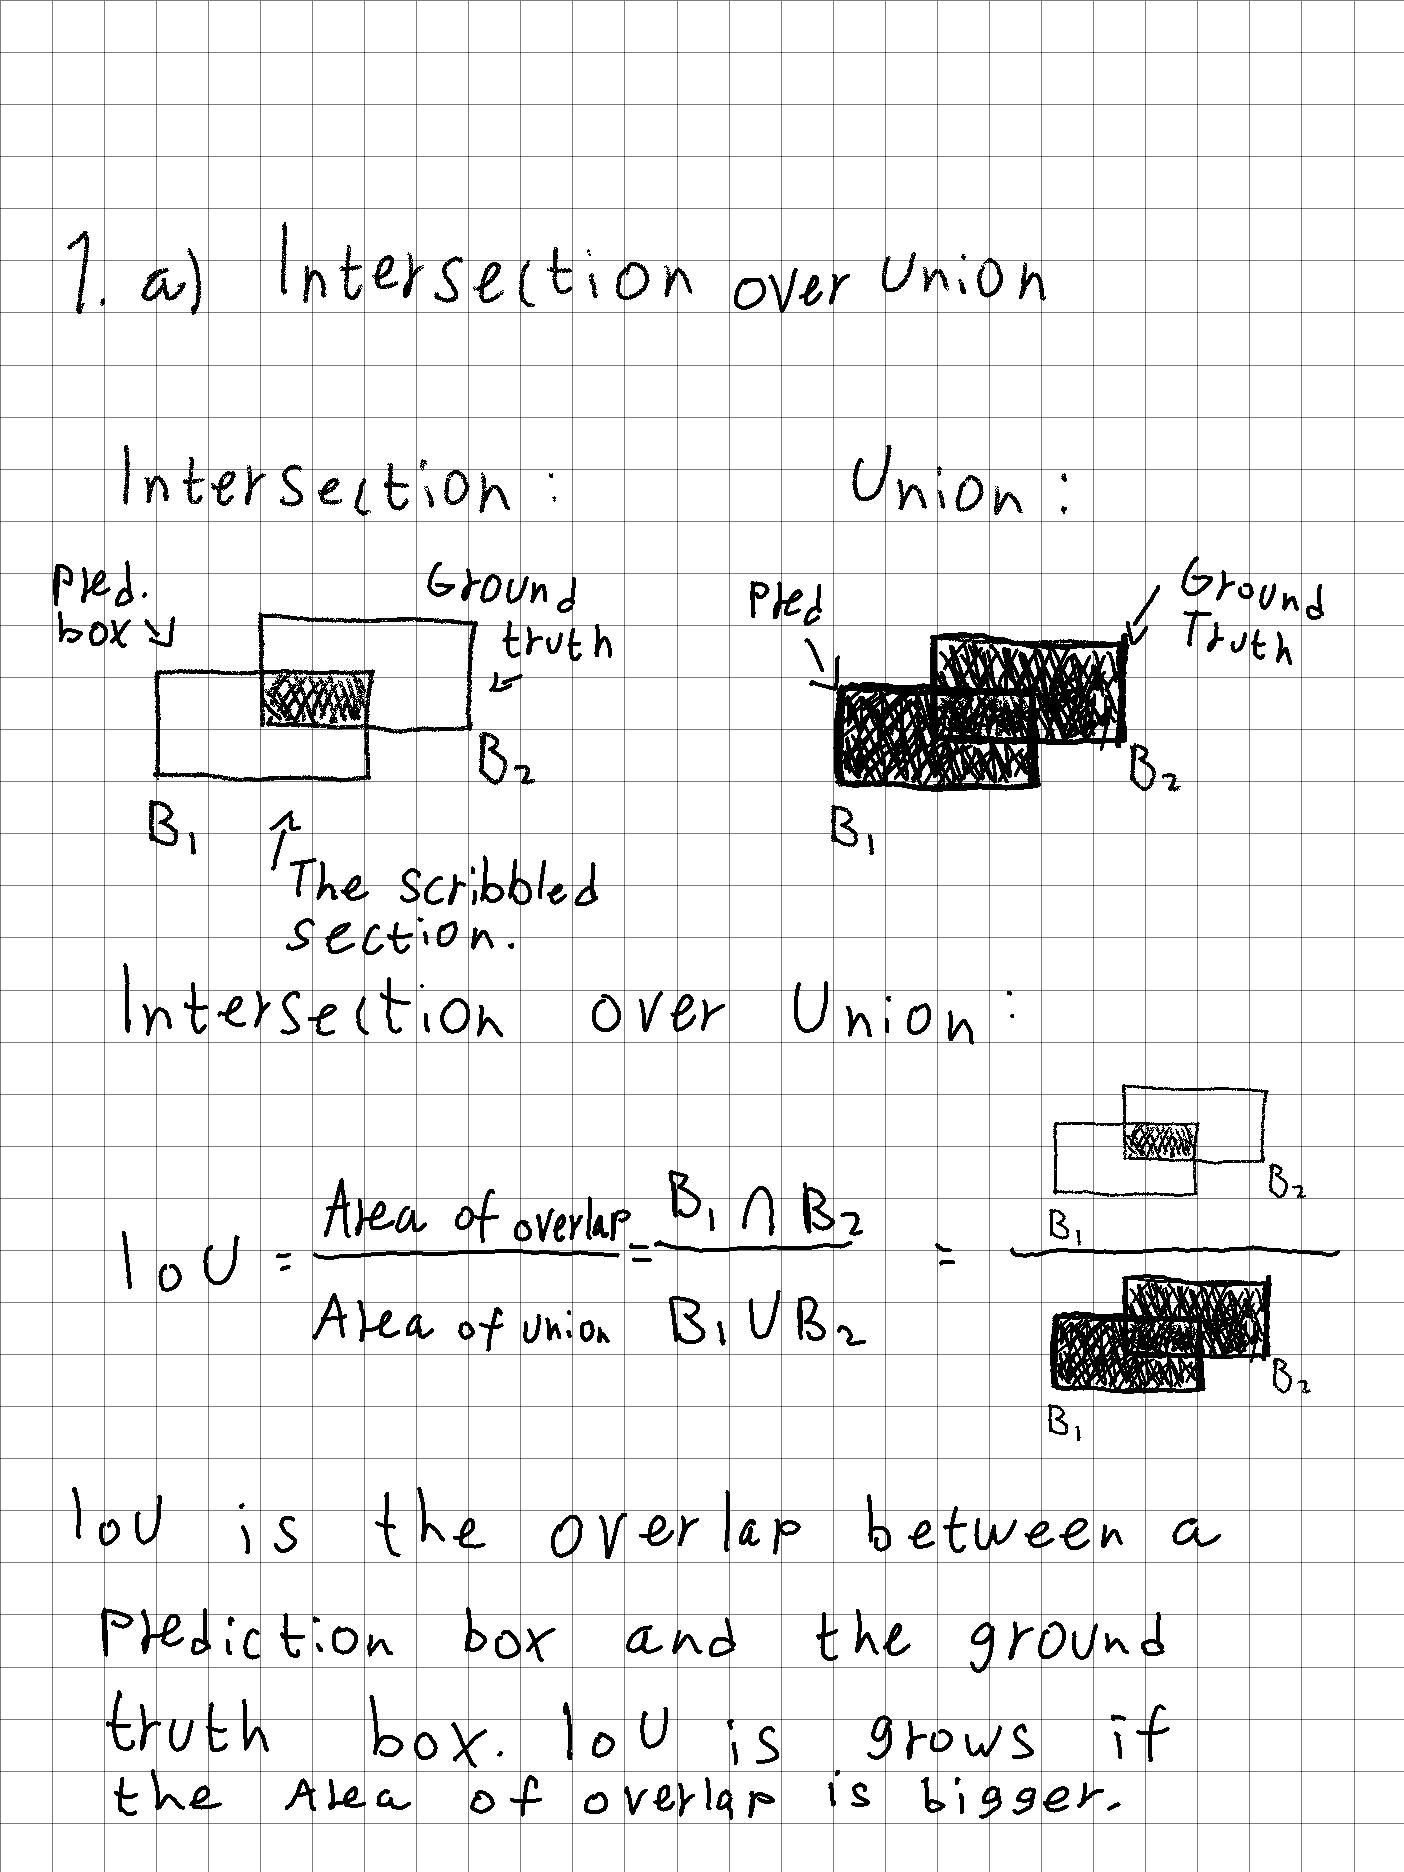 1. a) Intersection over Union
Intersection: Union:
Pred.
box
Ground
truth
B₁
B₂
The scribbled
section.
Pred
Ground
Truth
B₁
B₂
Intersection over Union:
IoU = Area of overlap / Area of union = B₁ ∩ B₂ / B₁ ∪ B₂ =
B₁
B₂
B₁
B₂
IoU is the overlap between a
prediction box and the ground
truth box. IoU is grows if
the Area of overlap is bigger.